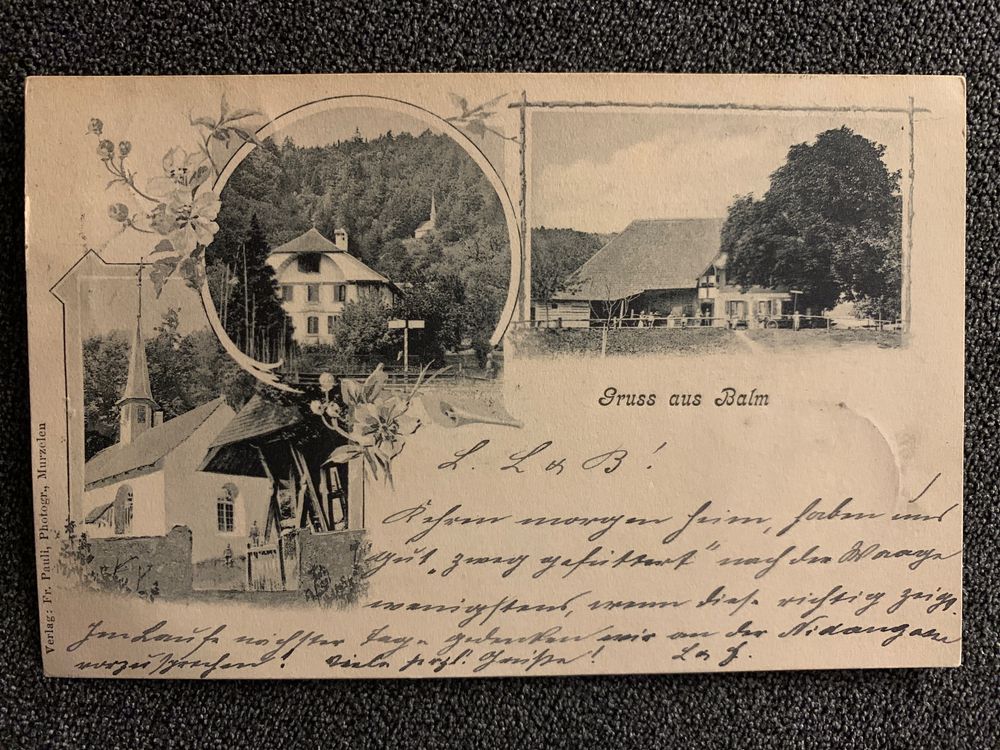 Gruss aus Balm
L. L & B!
Kehren morgen heim, haben uns
gut „zweg gefüttert" nach der Waage
wenigstens, wenn diese richtig zeigt.
Im Laufe nächster Tage gedenken wir an der
vorzusprechen! Viele herzl. Grüße! L & H.
Verlag: Fr. Pauli, Photogr., Murzelen